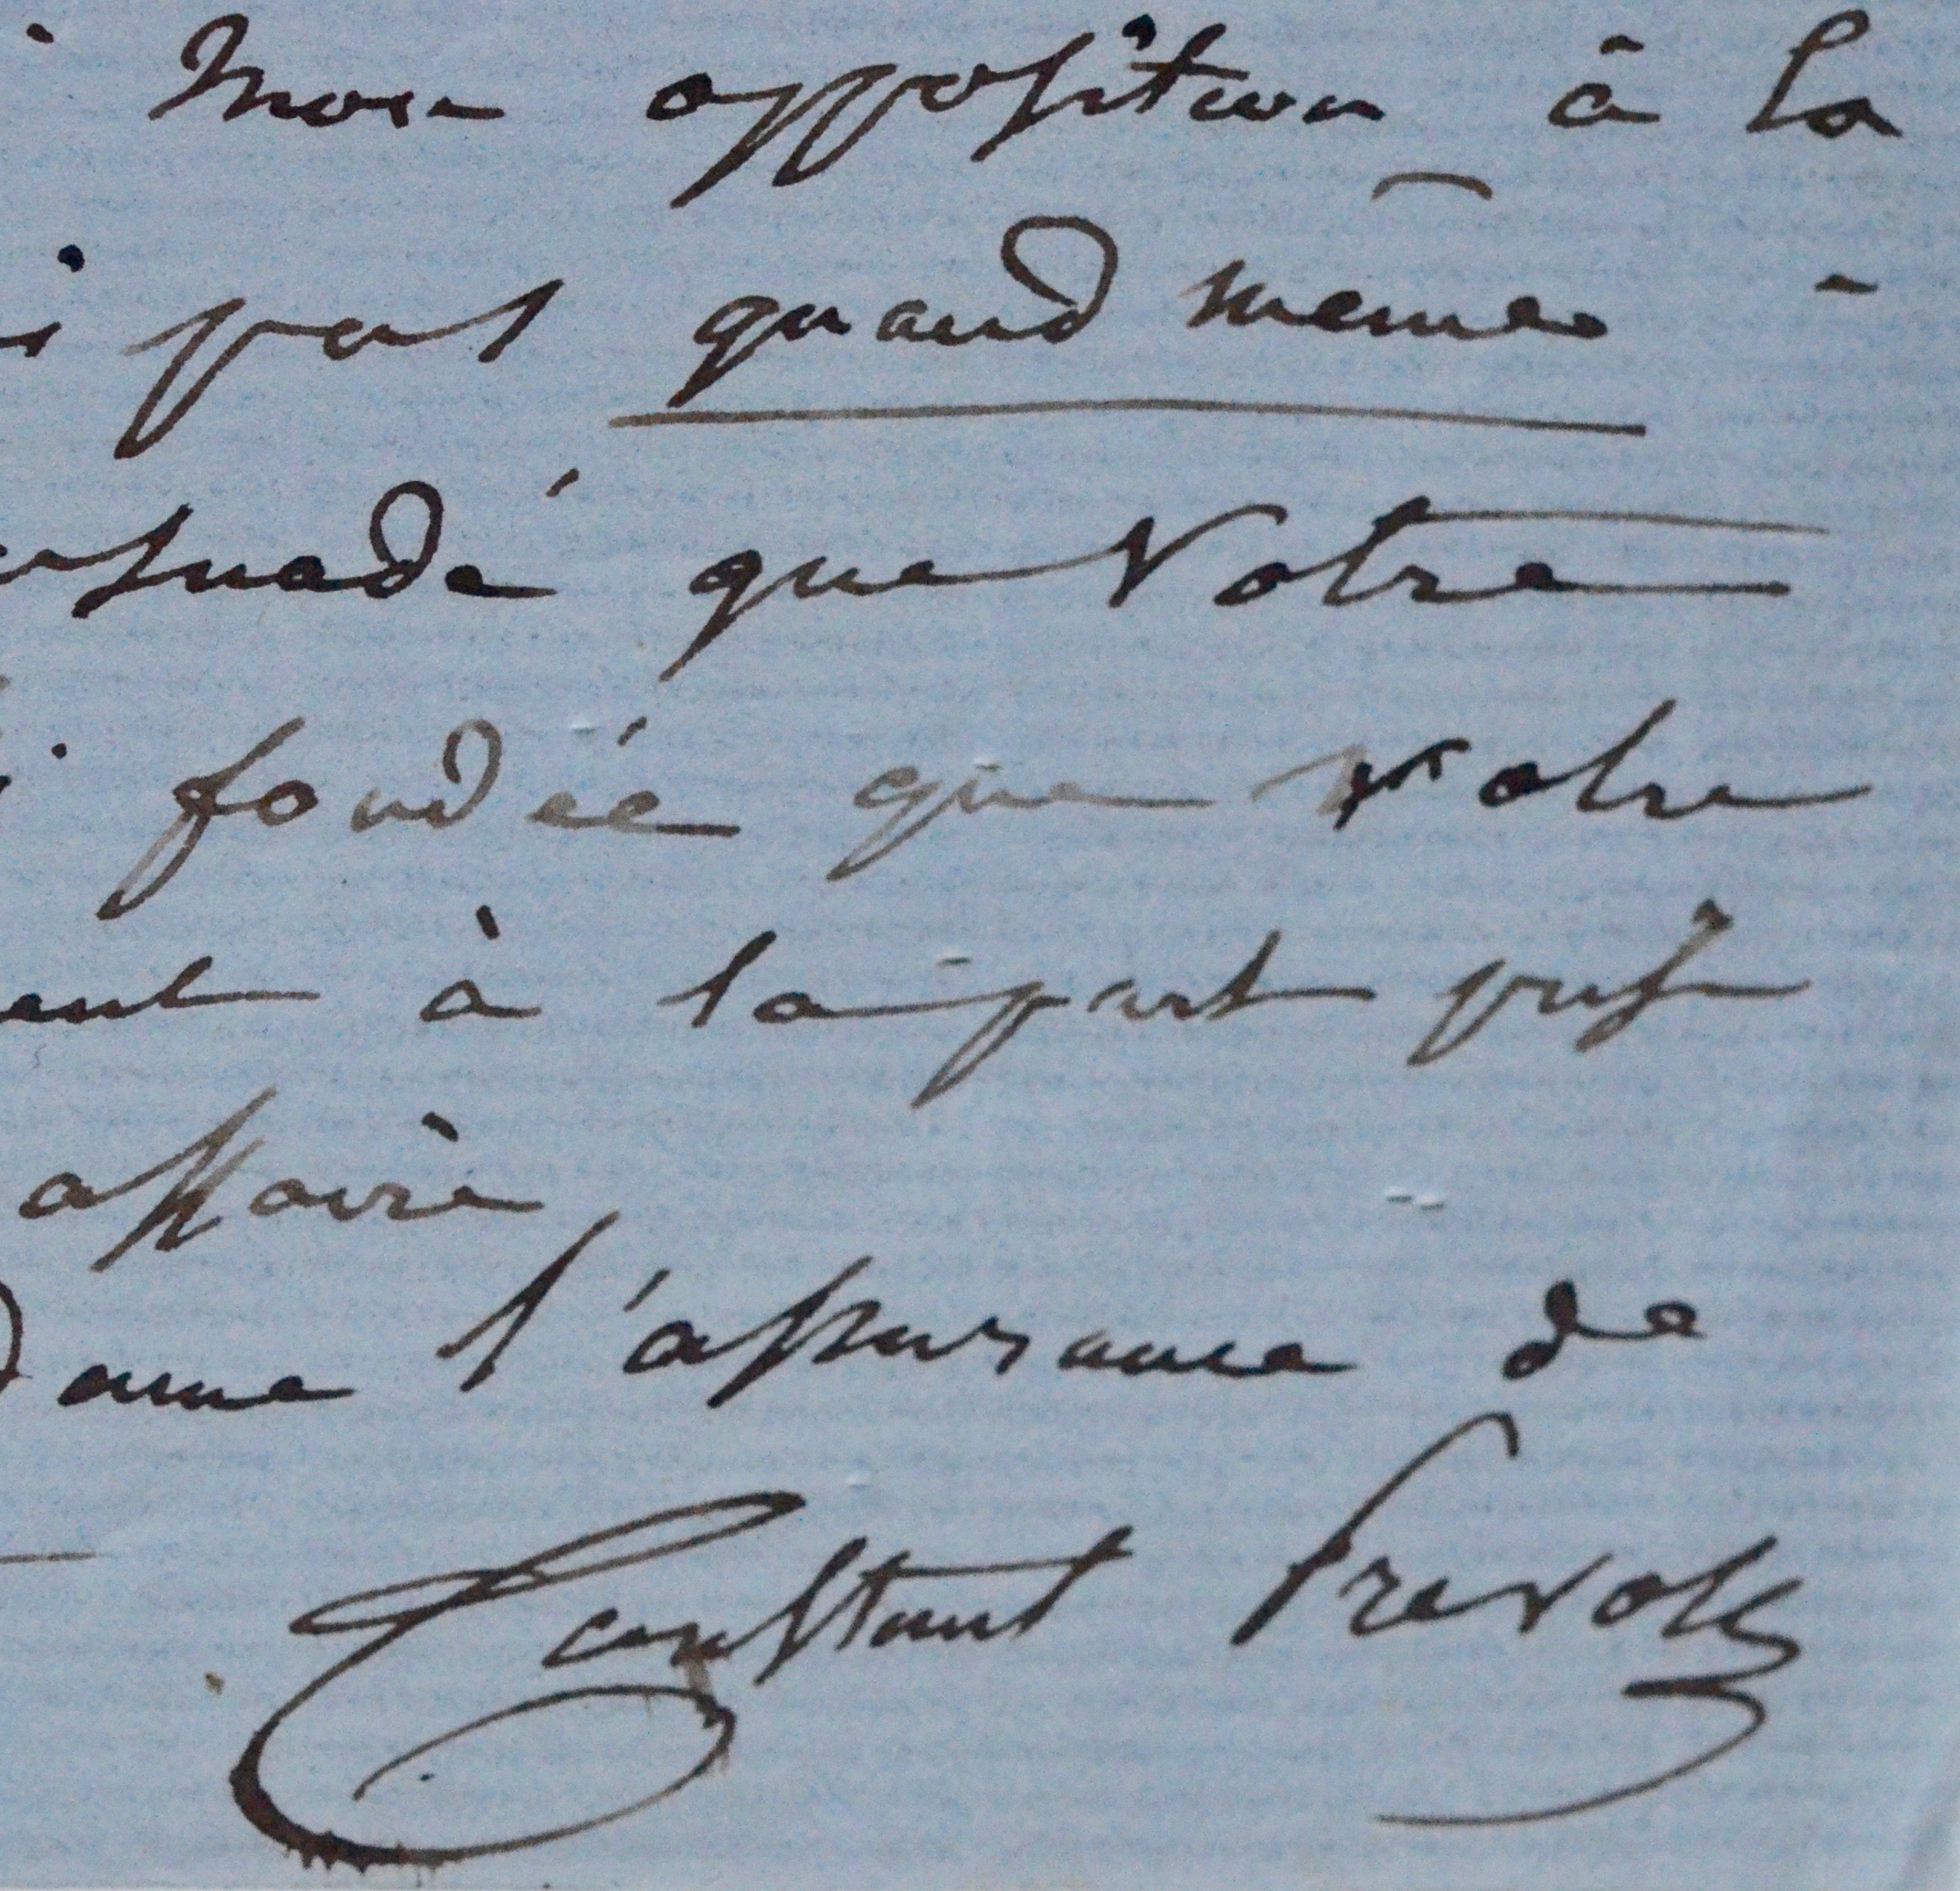 mon opposition à la
pas quand même
que Votre
fondée que votre
à la part
affaire
l'assurance de
Constant Prevost